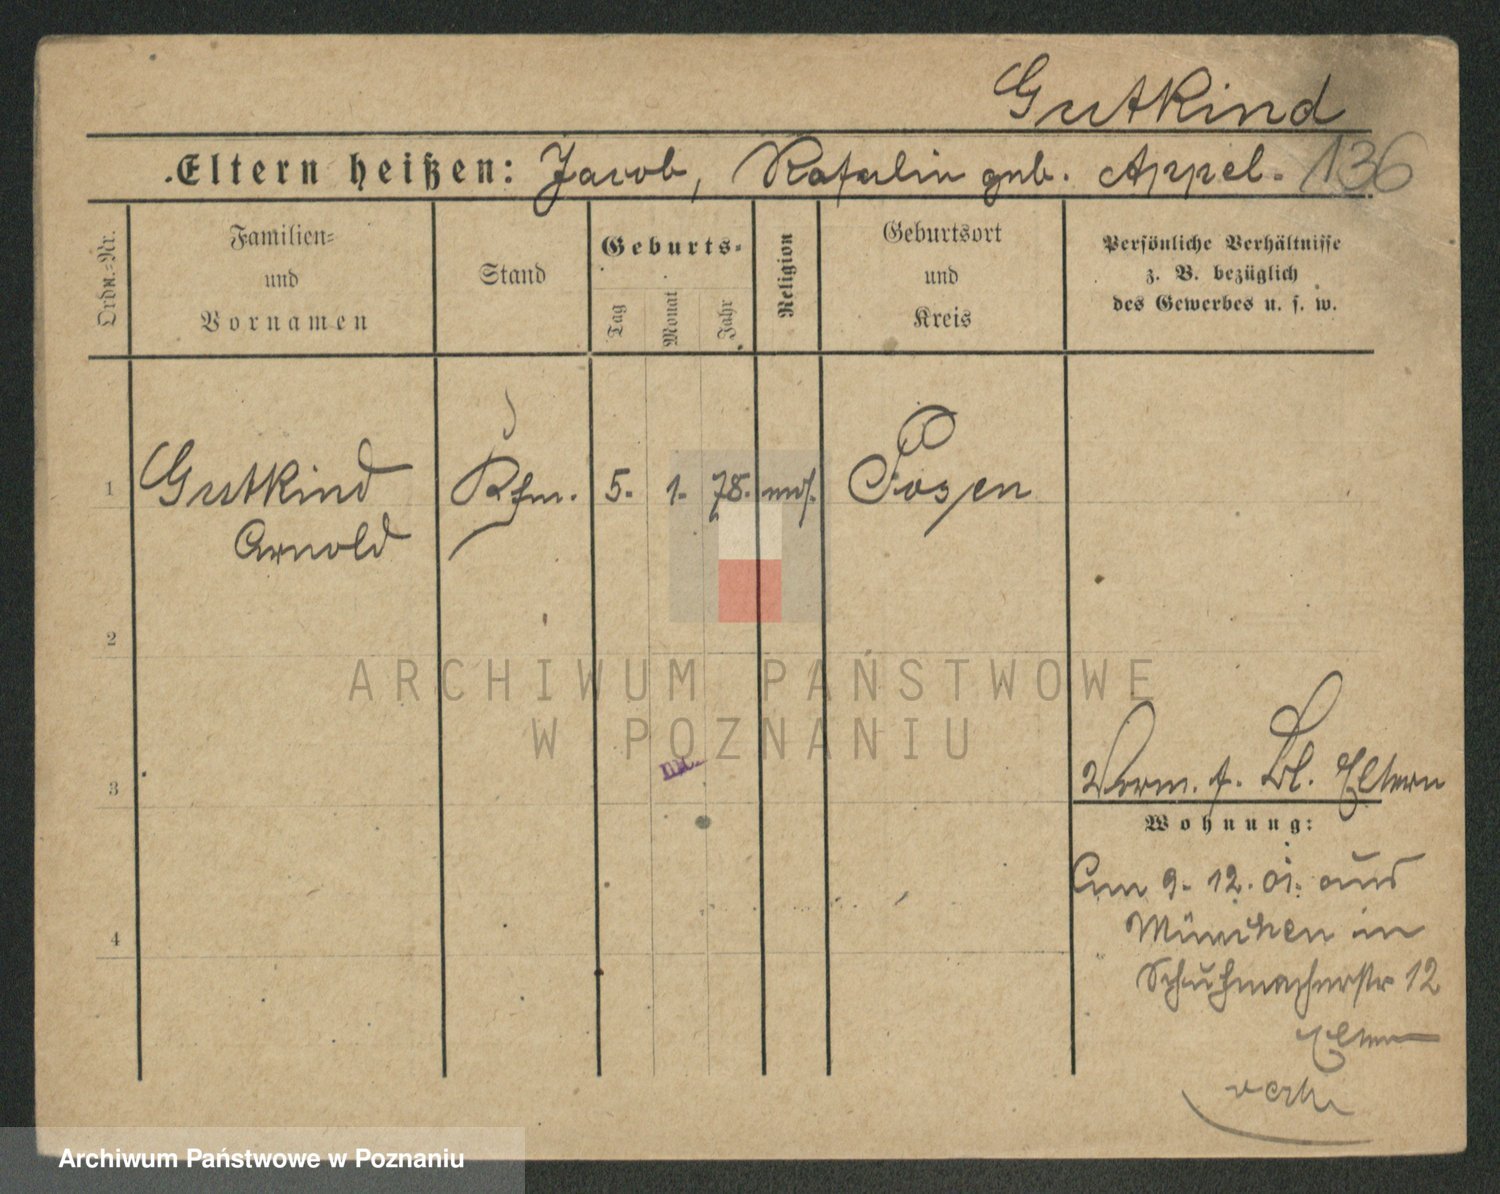 Gutkind
Eltern heißen: Jacob, Rafalin geb. Appel. 136
Ordn.=Nr.
Familien=
und
Vornamen
Stand
Geburts=
Tag
Monat
Jahr
Religion
Geburtsort
und
Kreis
Persönliche Verhältnisse
z. B. bezüglich
des Gewerbes u. s. w.
1 Gutkind Kfm. 5. 1. 78. mos. Posen
Arnold
2
3
4
Verm. f. Bl. Eltern
Wohnung:
Am 9. 12. 01. aus
München in
Schuhmacherstr 12
Eltern
ARCHIWUM PAŃSTWOWE
W POZNANIU
Archiwum Państwowe w Poznaniu